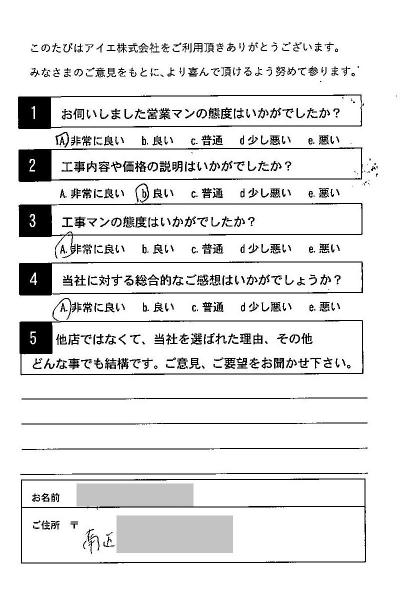 このたびはアイエ株式会社をご利用頂きありがとうございます。
みなさまのご意見をもとに、より喜んで頂けるよう努めて参ります。
1 お伺いしました営業マンの態度はいかがでしたか?
A.非常に良い b.良い c.普通 d少し悪い e.悪い
2 工事内容や価格の説明はいかがでしたか?
A.非常に良い b.良い c.普通 d少し悪い e.悪い
3 工事マンの態度はいかがでしたか?
A.非常に良い b.良い c.普通 d少し悪い e.悪い
4 当社に対する総合的なご感想はいかがでしょうか?
A.非常に良い b.良い c.普通 d少し悪い e.悪い
5 他店ではなくて、当社を選ばれた理由、その他
どんな事でも結構です。ご意見、ご要望をお聞かせ下さい。
お名前
ご住所 〒
南区